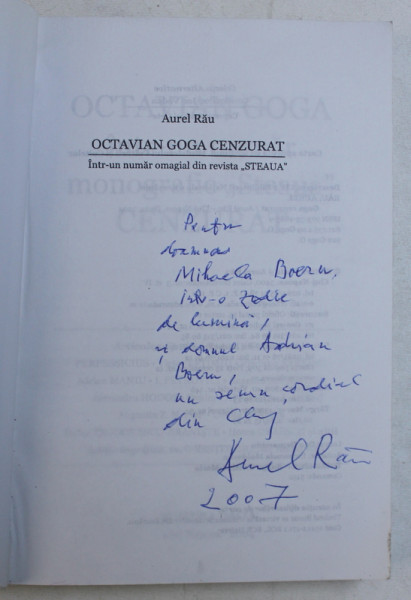 Aurel Rău
OCTAVIAN GOGA CENZURAT
Într-un număr omagial din revista „STEAUA”
Pentru
doamna
Mihaela Boeru,
într-o zodie
de lumină,
și domnul Adrian
Boeru,
un semn cordial
din Cluj
Aurel Rău
2007